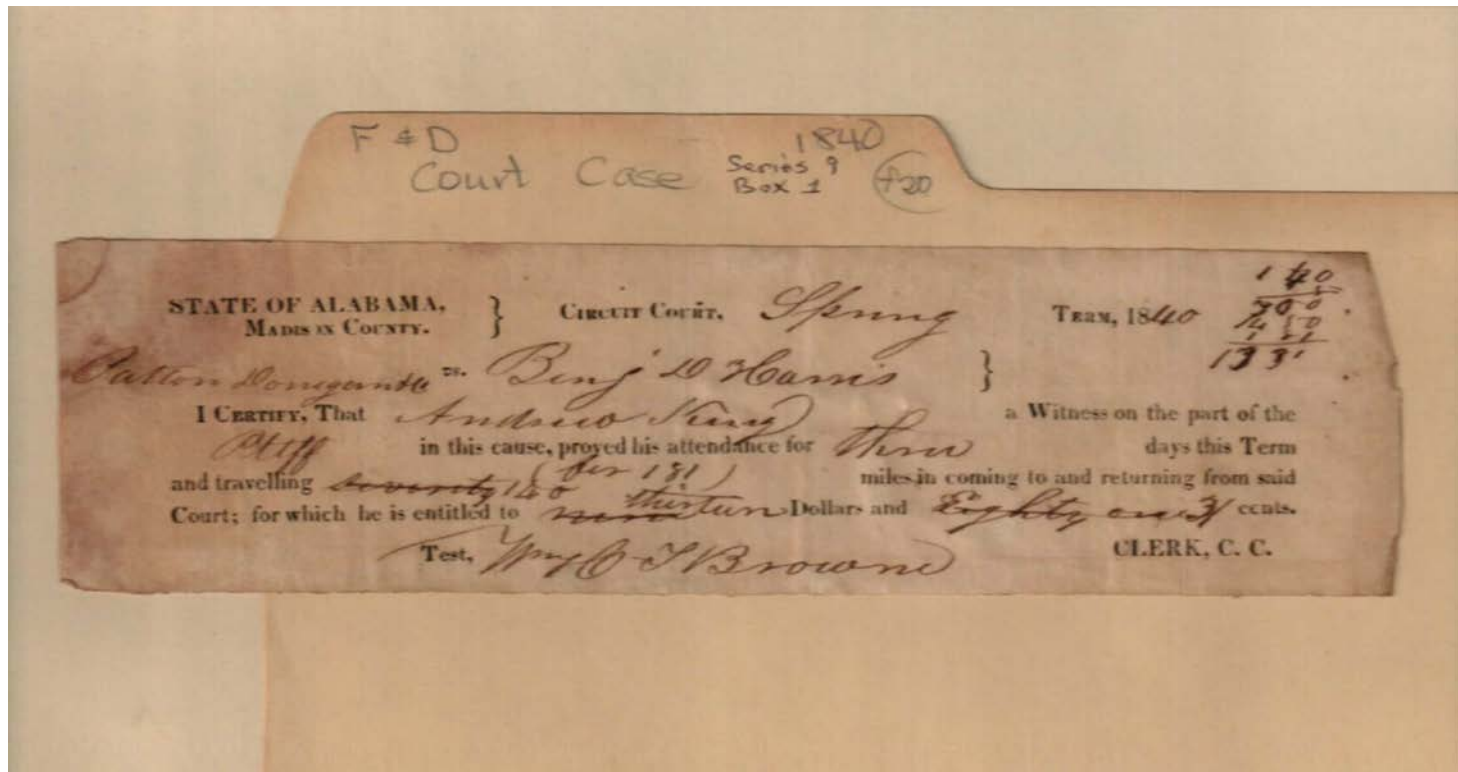 F & D 1840
Court Case Series 9
Box 1
STATE OF ALABAMA, } CIRCUIT COURT, Spring TERM, 1840
MADISON COUNTY.
Patton Donegan & Co vs. Benj D Harris }
I CERTIFY, That Andrew King a Witness on the part of the
Pltff in this cause, proved his attendance for three days this Term
(fer 181)
and travelling seventy 140 miles in coming to and returning from said
Court; for which he is entitled to nine thirteen Dollars and Eighty one 31 cents.
Test, Wm T Browne CLERK, C. C.
140
5
700
1331